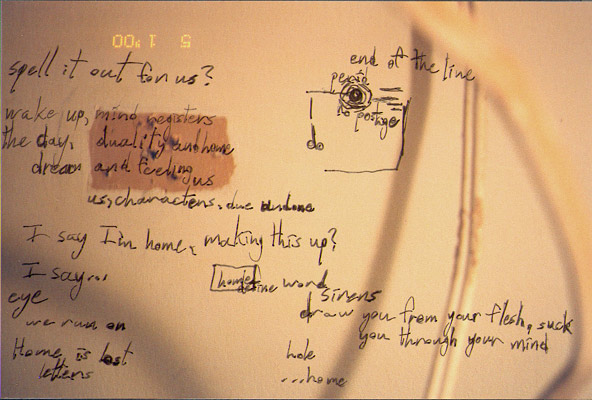 5 1 '00
spell it out for us?
wake up, mind registers
the day, duality and home
dream and feeling
us
us, characters, due undone
I say I'm home, making this up?
I say...
eye
we run on
Home is lost
letters
end of the line
period
no postage
do
home
define word
sirens
draw you from your flesh, suck
you through your mind
hole
...home